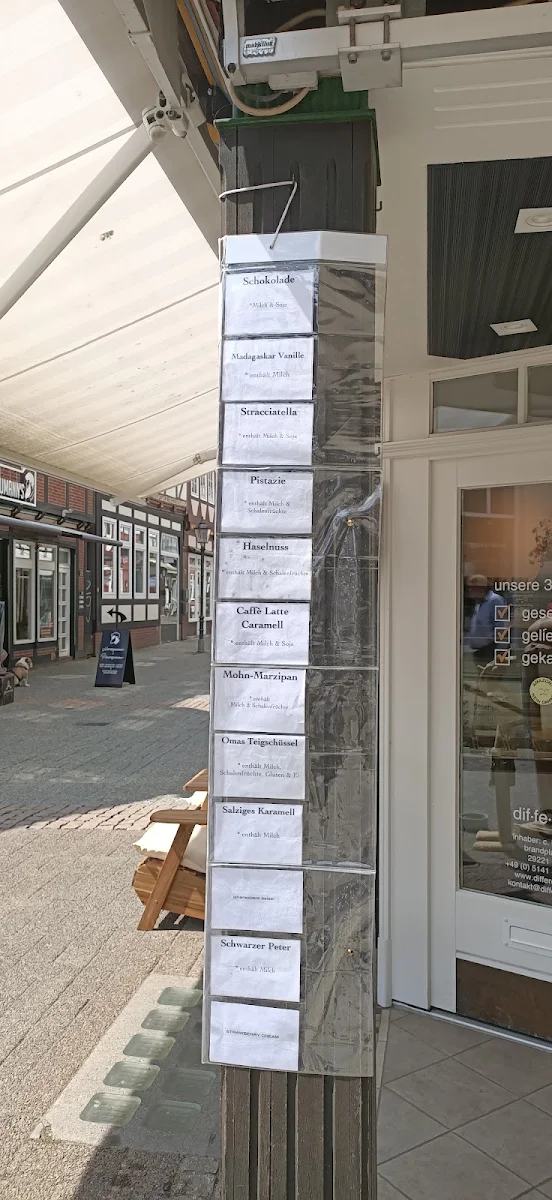 Schokolade
*Milch & Soja
Madagaskar Vanille
* enthält Milch
Stracciatella
* enthält Milch & Soja
Pistazie
* enthält Milch &
Schalenfrüchte
Haselnuss
* enthält Milch & Schalenfrüchte
Caffè Latte
Caramell
* enthält Milch & Soja
Mohn-Marzipan
* enthält
Milch & Schalenfrüchte
Omas Teigschüssel
* enthält Milch,
Schalenfrüchte, Gluten & Ei
Salziges Karamell
* enthält Milch
Schwarzer Peter
* enthält Milch
STRAWBERRY CREAM
unsere 3
gese
gelie
geka
dif·fe·
inhaber: c.
brandpla
29221
+49 (0) 5141
www.differen
kontakt@diff